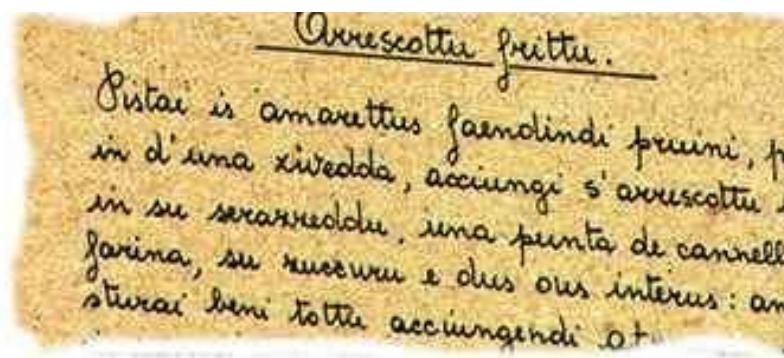 Arrescottu frittu.
Pistai is amarettus faendindi pruini, p
in d'una xivedda, acciungi s'arrescottu
in su serarreddu, una punta de cannell
farina, su zuccuru e dus ous interus: am
sturai beni tottu acciungendi at